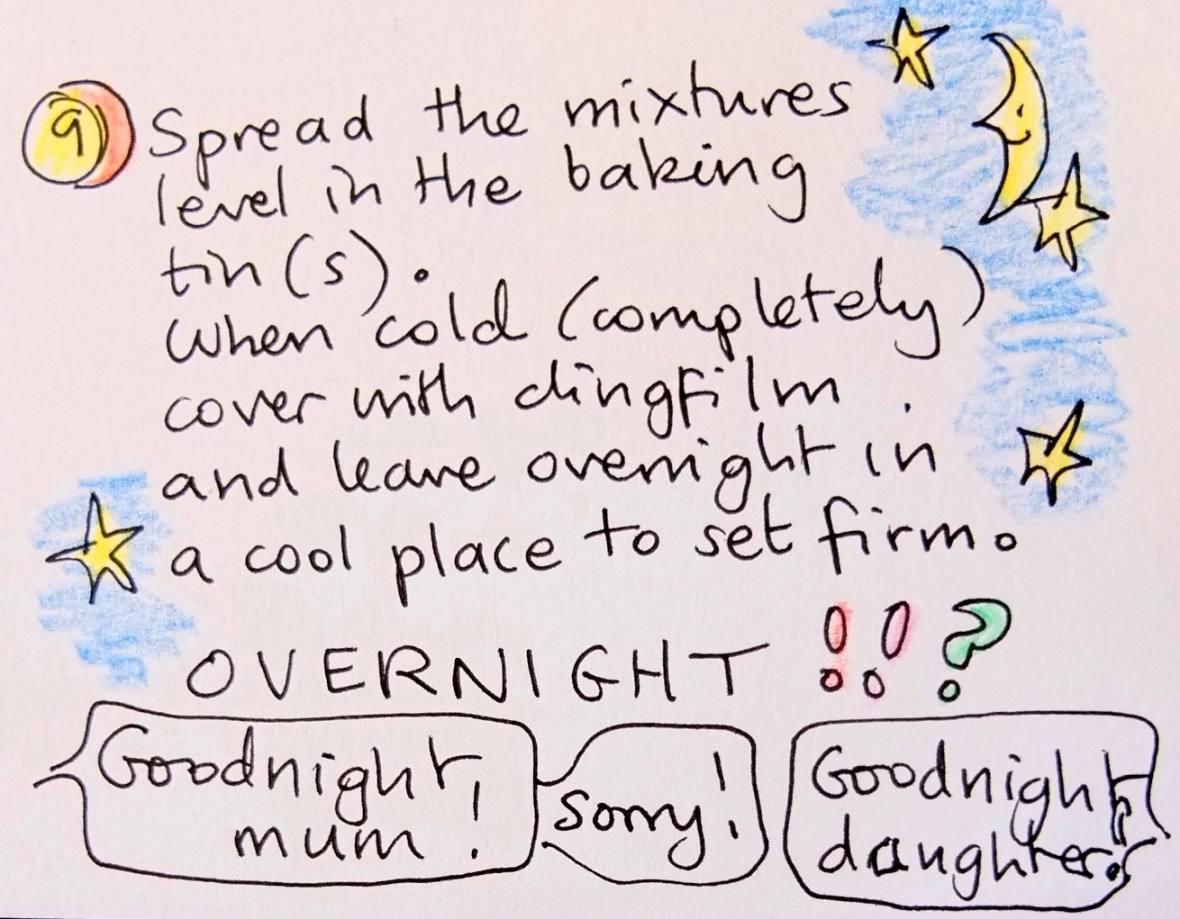 9 Spread the mixtures
level in the baking
tin(s).
When cold (completely)
cover with clingfilm
and leave overnight in
a cool place to set firm.
OVERNIGHT !!?
Goodnight,
mum!
Sorry!
Goodnight,
daughter!